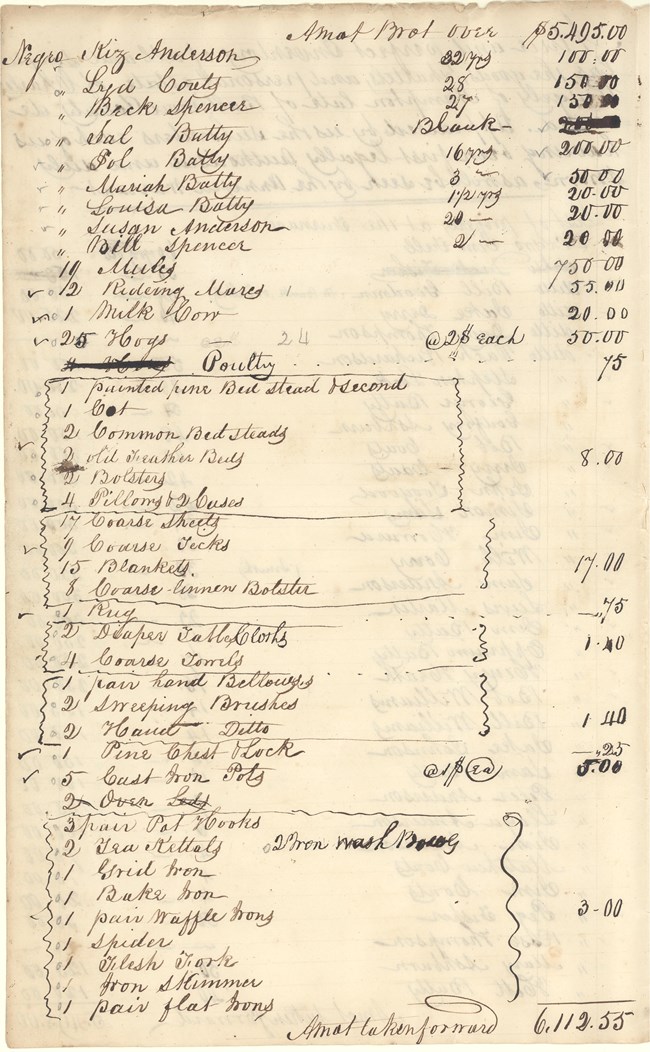 Amot Brot over $5.495.00
Negro Kiz Anderson 32 yrs 100.00
" Lyd Couts 28 150 00
" Beck Spencer 27 150
" Sal Batty Blank
" Sol Batty 16 yrs 200.00
" Mariah Batty 3 — 50.00
" Louisa Batty 1 1/2 yrs 20.00
" Susan Anderson 20 — 20.00
" Bill Spencer 2 — 20 00
19 Mules 750.00
12 Rideing Mares 1 55.00
1 Milk Cow 20.00
25 Hogs — 24 @ 2$ each 50.00
Poultry 75
1 painted pine Bed stead & second
1 Cot
2 Common Bed steads
2 old Feather Beds 8.00
2 Bolsters
4 Pillows & 2 Cases
17 Coarse sheets
9 Coarse Tecks
15 Blankets 17.00
8 Coarse linnen Bolster
1 Rug —"75
2 Diaper Table Cloths
4 Coarse Towels 1.40
1 pair hand Bellowses
2 Sweeping Brushes
2 Hand Ditto 1 40
1 Pine Chest & Lock —"25
5 Cast Iron Pots @ 1$ ea 5.00
2 Oven Leds
3 pair Pot Hooks
2 Tea Kettals 2 Iron wash Bowls
1 Grid Iron
1 Bake Iron
1 pair Waffle Irons 3-00
1 Spider
1 Flesh Fork
1 Iron Skimmer
1 pair flat Irons
Amot taken forward 6,112.55